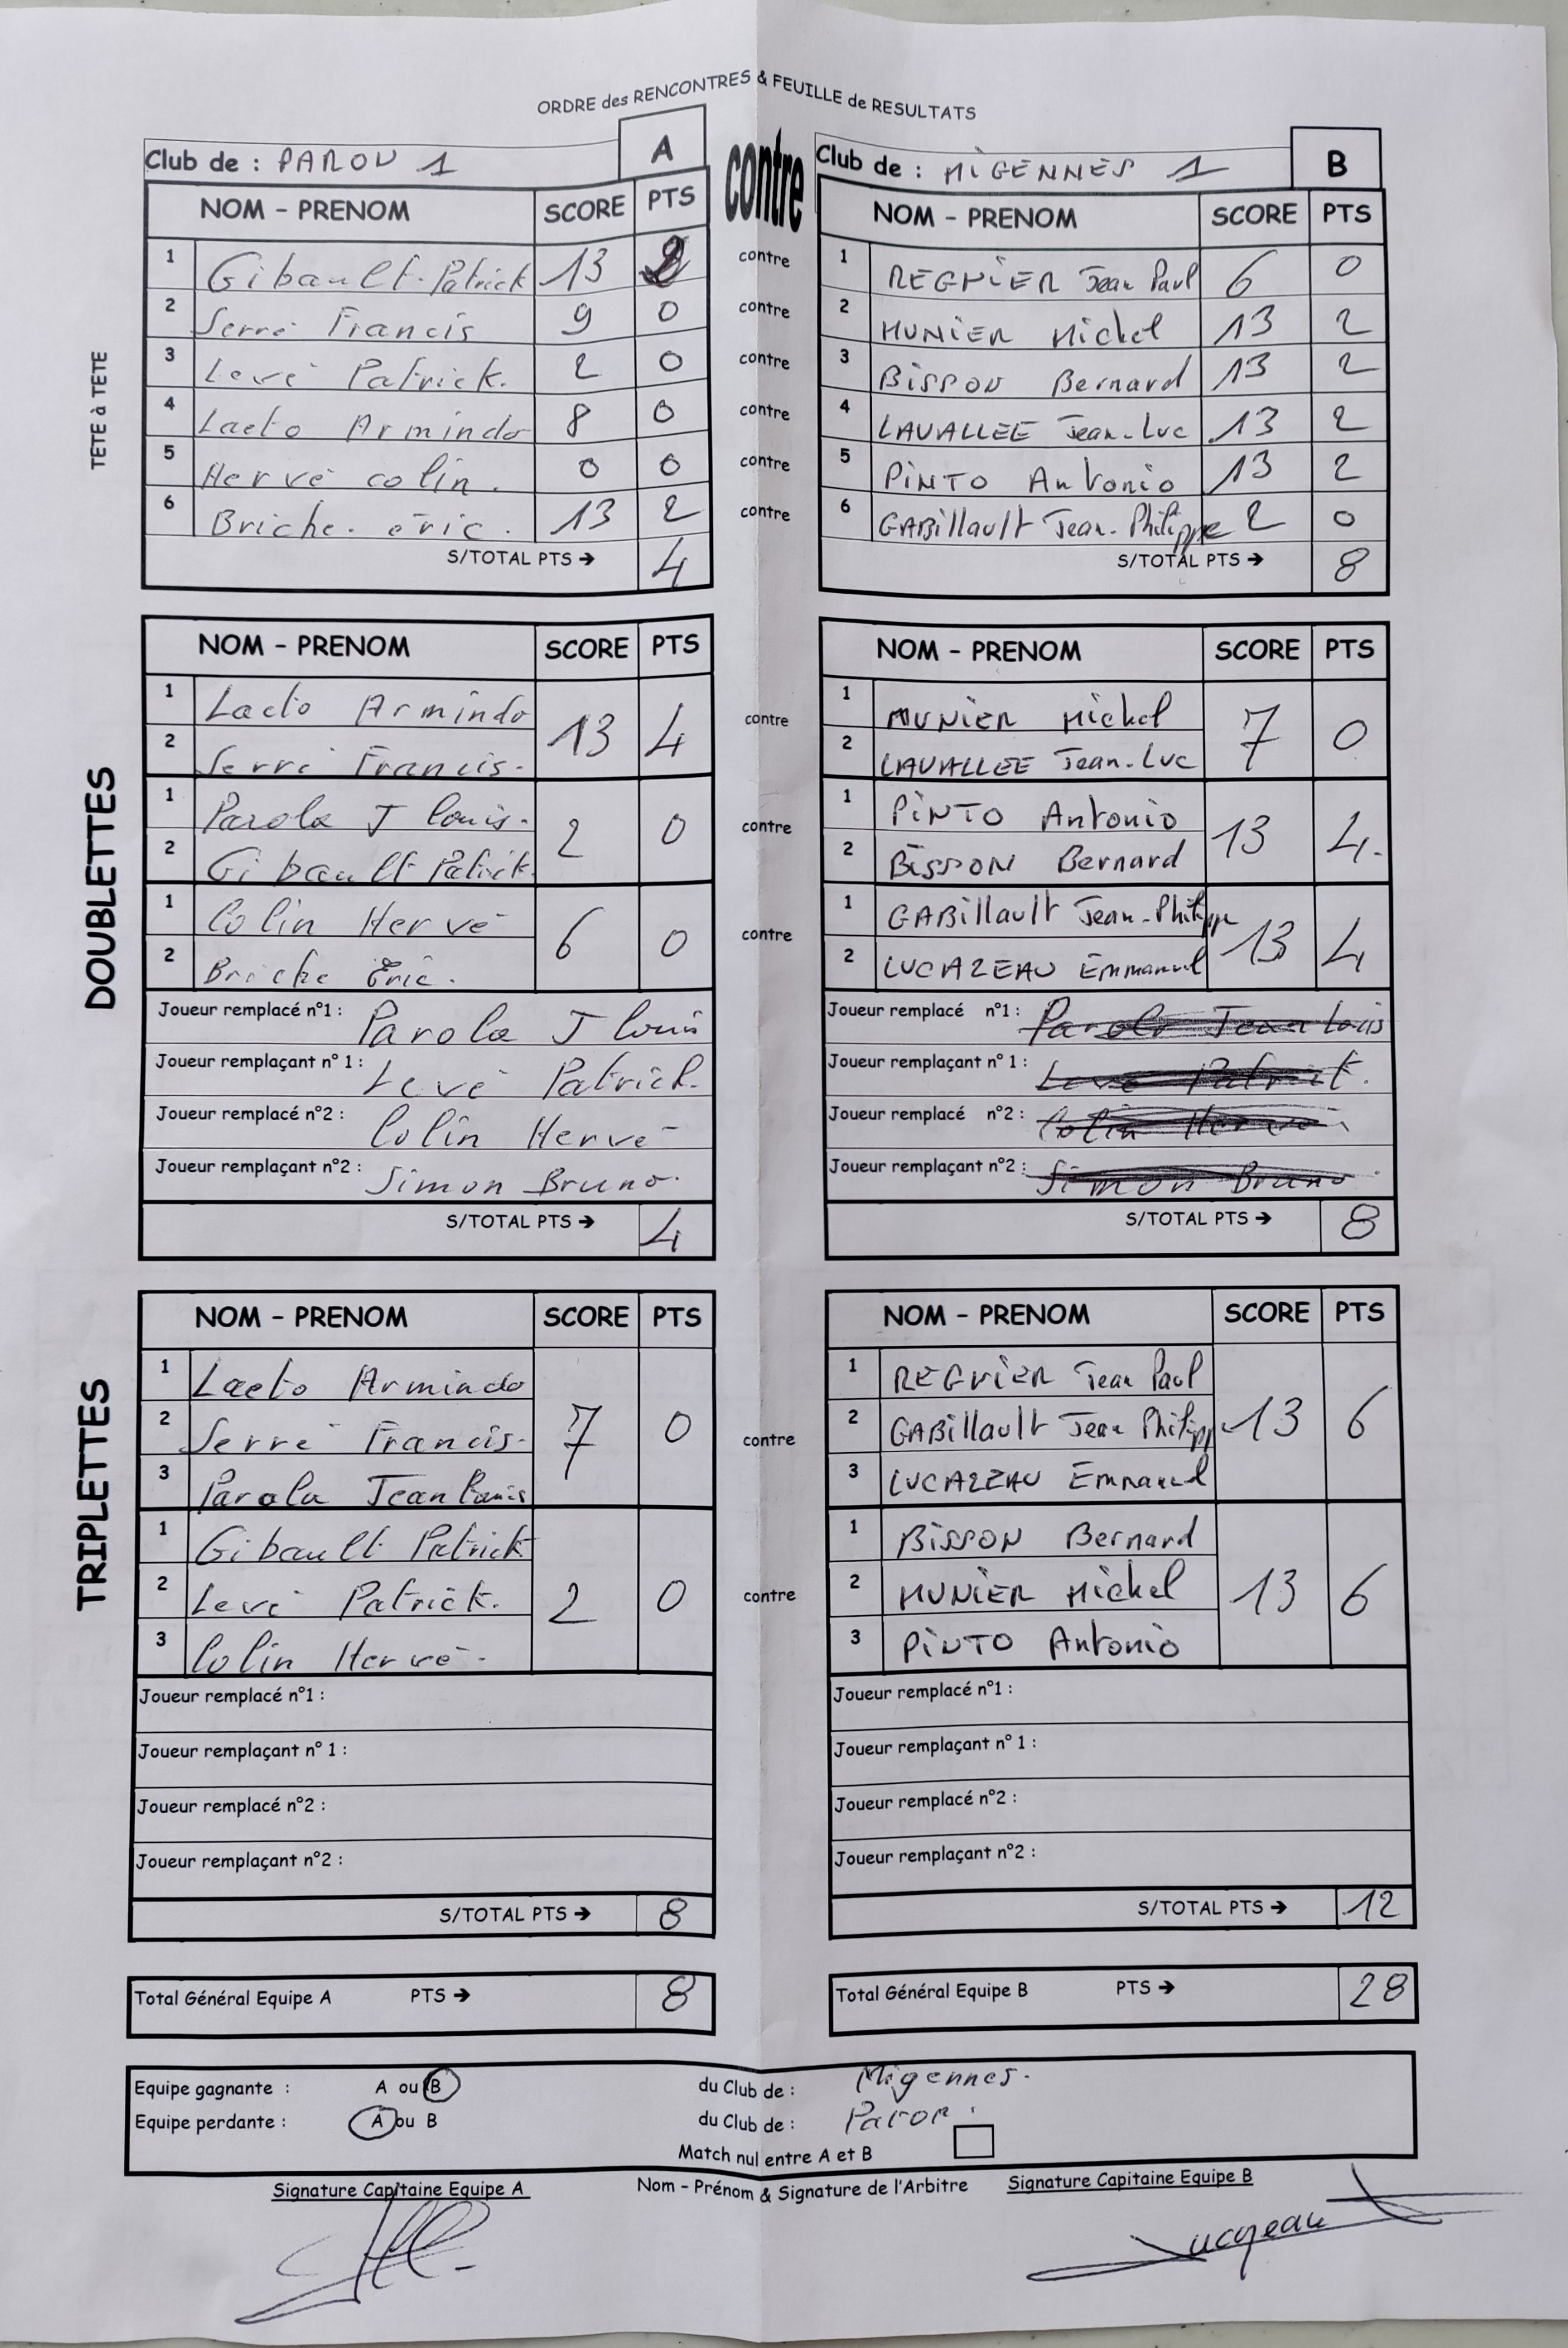 ORDRE des RENCONTRES & FEUILLE de RESULTATS
Club de : PARON 1 A contre Club de : MIGENNES 1 B
NOM - PRENOM SCORE PTS NOM - PRENOM SCORE PTS
TETE à TETE
1 Gibault Patrick 13 2 contre 1 REGNIER Jean Paul 6 0
2 Serré Francis 9 0 contre 2 MUNIER Michel 13 2
3 Levé Patrick. 2 0 contre 3 BISSON Bernard 13 2
4 Laeto Armindo 8 0 contre 4 LAVALLEE Jean-Luc 13 2
5 Hervé colin. 0 0 contre 5 PINTO Antonio 13 2
6 Briche. eric. 13 2 contre 6 GABillault Jean-Philippe 2 0
S/TOTAL PTS → 4 S/TOTAL PTS → 8
DOUBLETTES
NOM - PRENOM SCORE PTS NOM - PRENOM SCORE PTS
1 Laeto Armindo 13 4 contre 1 MUNIER Michel 7 0
2 Serré Francis. 2 LAVALLEE Jean-Luc
1 Parola J louis. 2 0 contre 1 PINTO Antonio 13 4.
2 Gibault Patrick 2 BISSON Bernard
1 Colin Hervé 6 0 contre 1 GABillault Jean-Philippe 13 4
2 Briche Eric. 2 LUCAZEAU Emmanuel
Joueur remplacé n°1 : Parola J louis Joueur remplacé n°1 : Parola Jean Louis
Joueur remplaçant n° 1 : Levé Patrick. Joueur remplaçant n° 1 : Levé Patrick.
Joueur remplacé n°2 : Colin Hervé Joueur remplacé n°2 : Colin Hervé
Joueur remplaçant n°2 : Simon Bruno. Joueur remplaçant n°2 : Simon Bruno
S/TOTAL PTS → 4 S/TOTAL PTS → 8
TRIPLETTES
NOM - PRENOM SCORE PTS NOM - PRENOM SCORE PTS
1 Laeto Armindo 1 REGNIER Jean Paul
2 Serré Francis. 7 0 contre 2 GABillault Jean Philipp 13 6
3 Parola Jean Louis 3 LUCAZEAU Emmanuel
1 Gibault Patrick 1 BISSON Bernard
2 Levé Patrick. 2 0 contre 2 MUNIER Michel 13 6
3 Colin Hervé. 3 PINTO Antonio
Joueur remplacé n°1 : Joueur remplacé n°1 :
Joueur remplaçant n° 1 : Joueur remplaçant n° 1 :
Joueur remplacé n°2 : Joueur remplacé n°2 :
Joueur remplaçant n°2 : Joueur remplaçant n°2 :
S/TOTAL PTS → 8 S/TOTAL PTS → 12
Total Général Equipe A PTS → 8 Total Général Equipe B PTS → 28
Equipe gagnante : A ou B du Club de : Migennes.
Equipe perdante : A ou B du Club de : Paron.
Match nul entre A et B
Signature Capitaine Equipe A Nom - Prénom & Signature de l'Arbitre Signature Capitaine Equipe B
Lucazeau